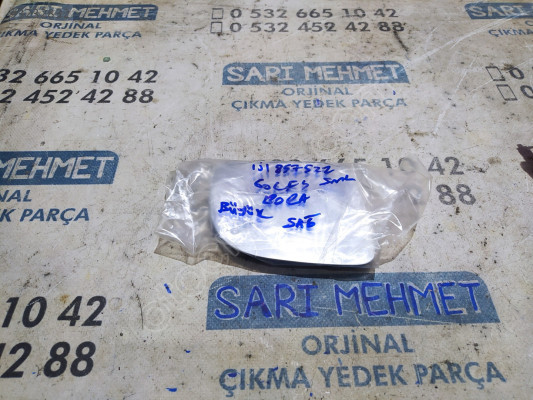 SARI MEHMET
ORJİNAL
ÇIKMA YEDEK PARÇA
0 532 665 10 42
0 532 452 42 88
532 665 10 42
2 452 42 88
SARI MEHMET
ORJİNAL
ÇIKMA YEDEK PARÇA
MEHMET
ORJİNAL
YEDEK PARÇA
665 10 42
42 88
1J1 857 522
GOLF 4
BORA
Büyük
SAĞ
10 42
2 88
SARI MEHMET
ORJİNAL
ÇIKMA YEDEK PARÇA